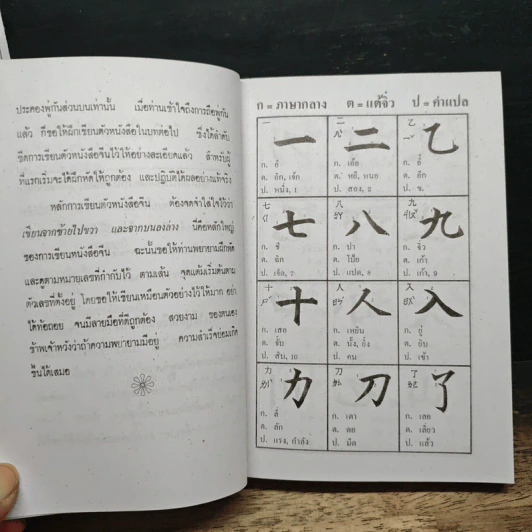 ประคองพู่กันส่วนบนเท่านั้น เมื่อท่านเข้าใจถึงการถือพู่กัน
แล้ว ก็ขอให้ฝึกเขียนตัวหนังสือในบทต่อไป ซึ่งได้ลำดับ
ขีดการเขียนตัวหนังสือจีนไว้ให้อย่างละเอียดแล้ว สำหรับผู้
ที่แรกเริ่มจะได้ฝึกหัดให้ถูกต้อง และปฏิบัติได้ผลอย่างแท้จริง
หลักการเขียนตัวหนังสือจีน ต้องจดจำใส่ใจไว้ว่า
เขียนจากซ้ายไปขวา และจากบนลงล่าง นี่คือหลักใหญ่
ของการเขียนหนังสือจีน ฉะนั้นขอให้ท่านพยายามฝึกหัด
และดูตามหมายเลขที่กำกับไว้ ตามเส้น จุดแต้มเริ่มต้นตาม
ตัวเลขที่ตั้งอยู่ โดยขอให้เขียนเหมือนตัวอย่างไว้ให้มาก อย่า
ได้ท้อถอย จนมีลายมือที่ดีถูกต้อง สวยงาม ของตนเอง
ข้าพเจ้าหวังว่าถ้าความพยายามมีอยู่ ความสำเร็จย่อมเกิด
ขึ้นได้เสมอ
ก = ภาษากลาง ต = แต้จิ๋ว ป = คำแปล
一 一 二 二 乙 乙
ก. อี ก. เอ้อ ก. อี่
ต. อิก, เจ็ก ต. หยี, หนอ ต. อิก
ป. หนึ่ง, 1 ป. สอง, 2 ป. ข.
七 七 八 八 九 九
ก. ชี ก. ปา ก. จิ่ว
ต. ฉิก ต. โป๊ย ต. เก้า
ป. เจ็ด, 7 ป. แปด, 8 ป. เก้า, 9
十 十 人 人 入 入
ก. เสอ ก. เหยิน ก. ยู่
ต. จั๊บ ต. นั้ง, ยิ้ง ต. ยิบ
ป. สิบ, 10 ป. คน ป. เข้า
力 力 刀 刀 了 了
ก. ลี่ ก. เตา ก. เลอ
ต. ลัก ต. ตอ ต. เลี่ยว
ป. แรง, กำลัง ป. มีด ป. แล้ว